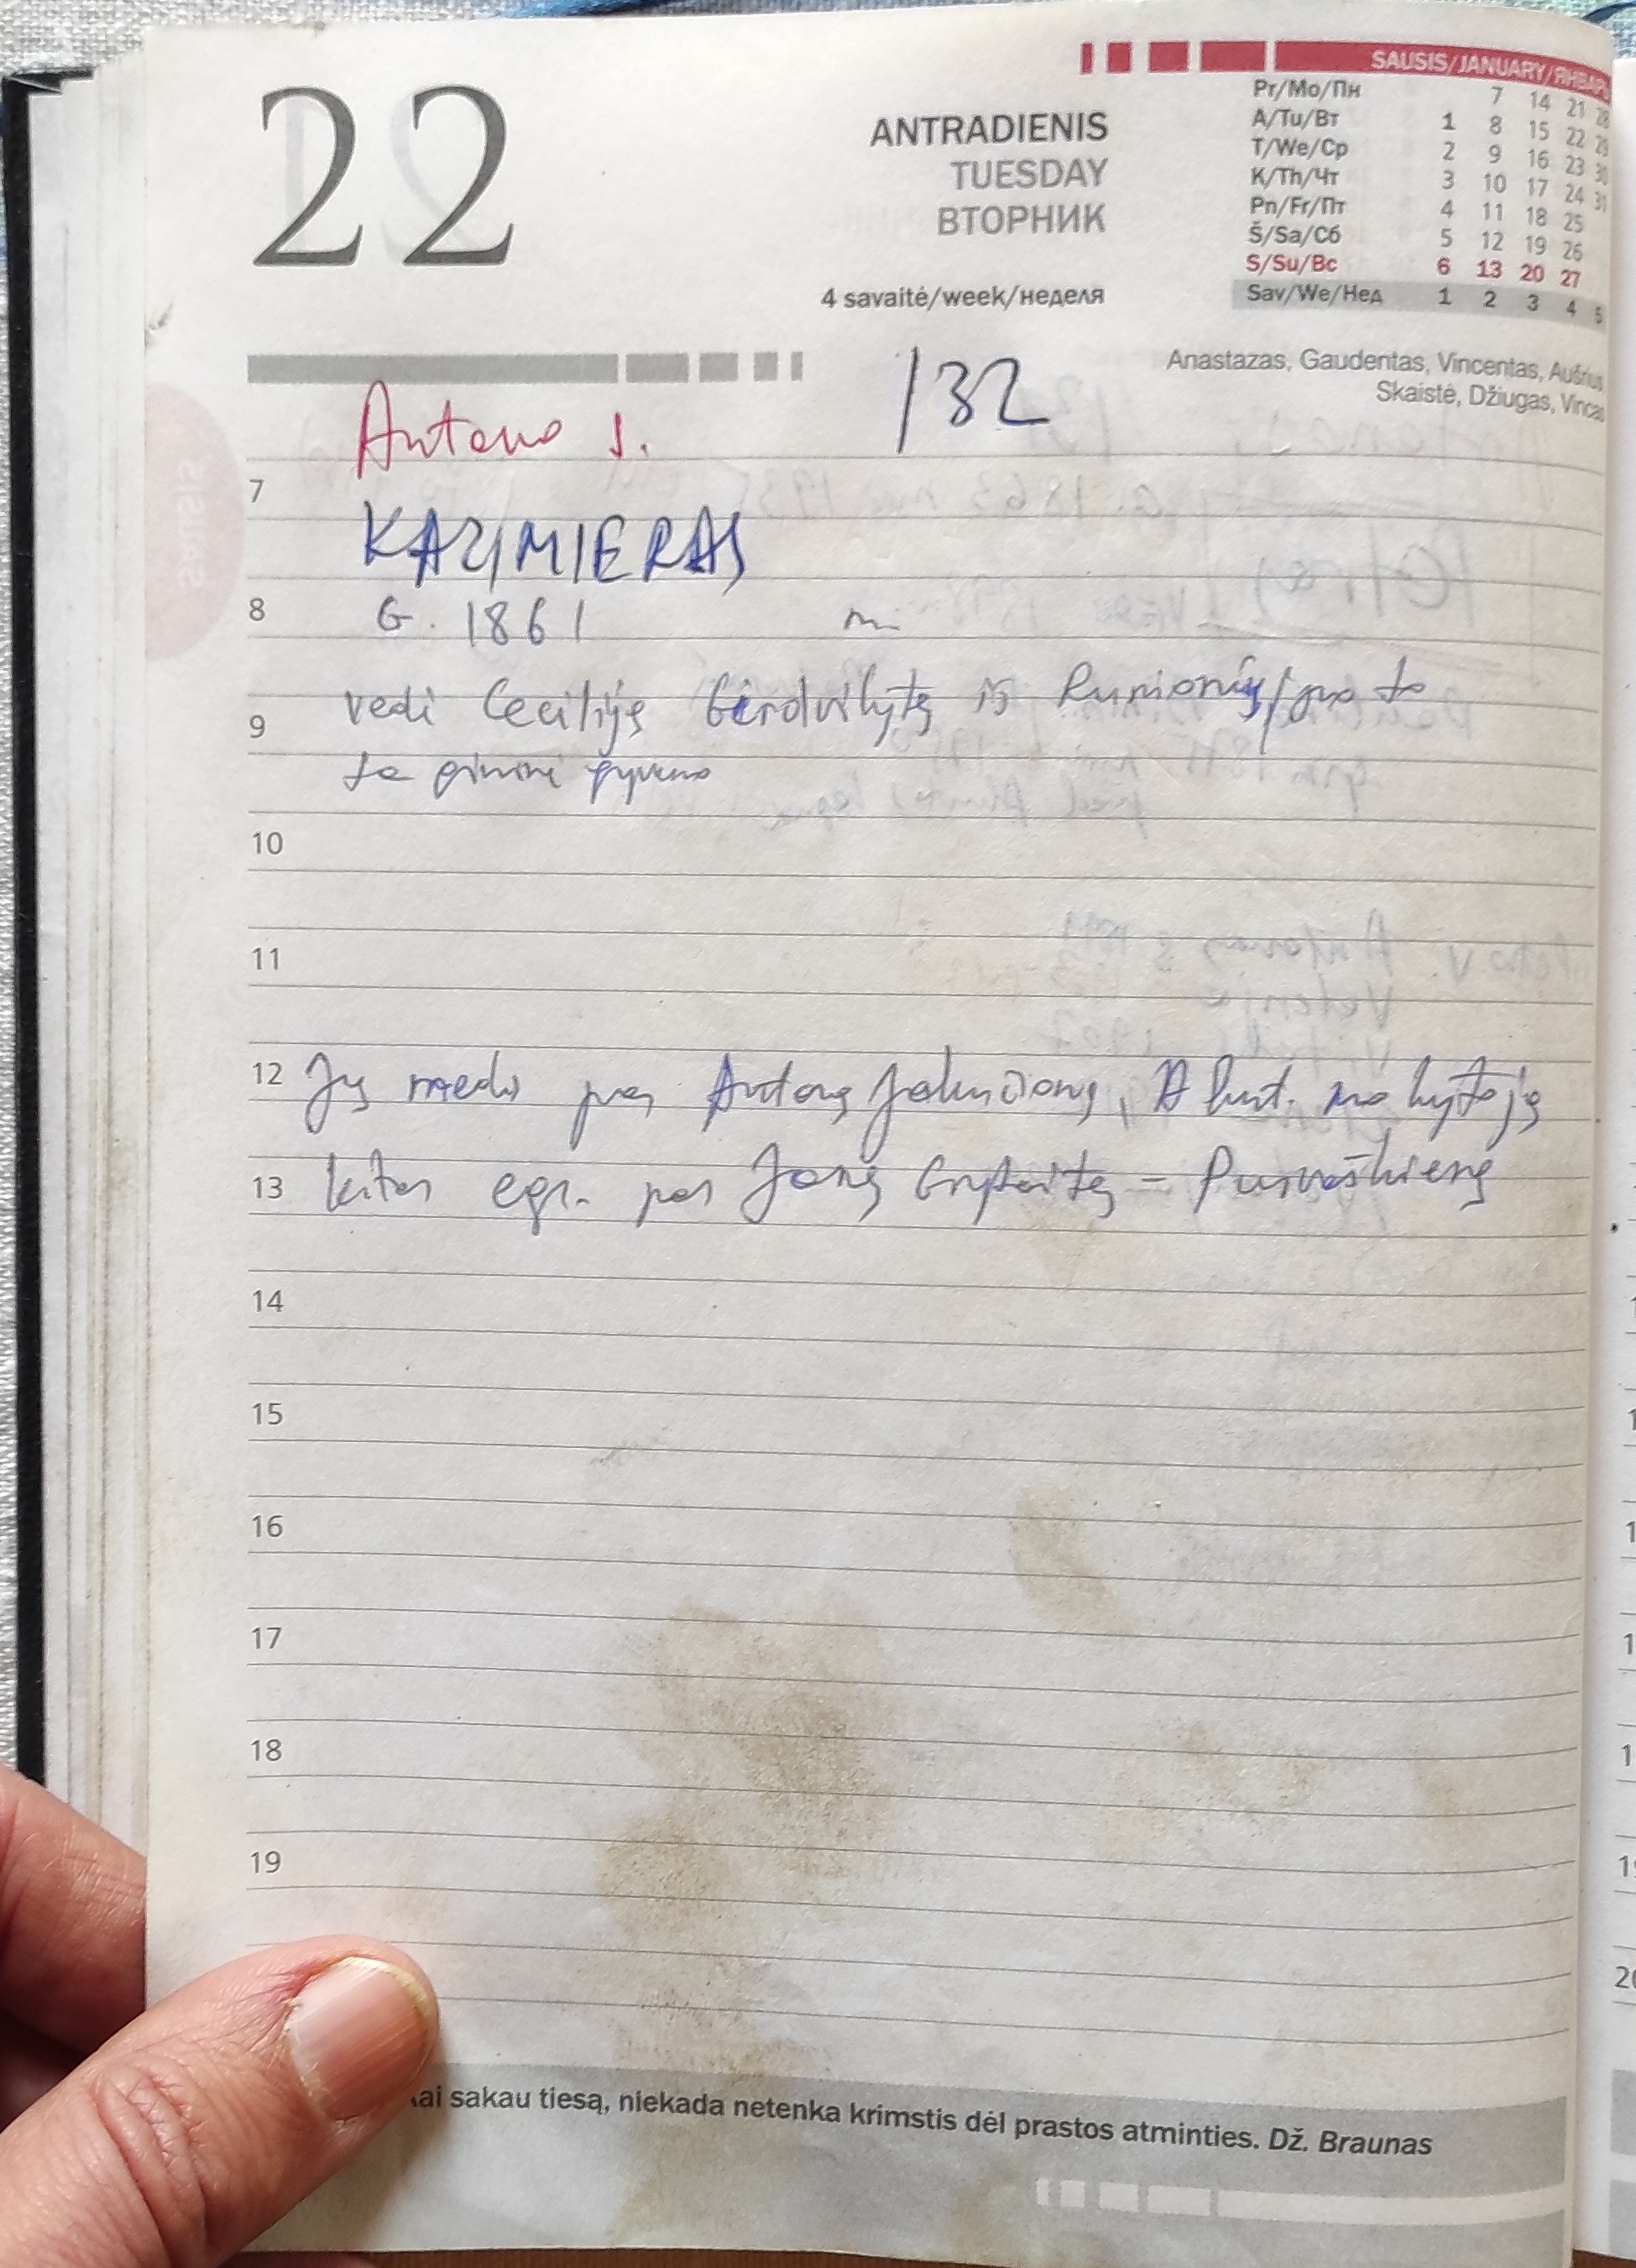 22
ANTRADIENIS
TUESDAY
ВТОРНИК
4 savaitė/week/неделя
SAUSIS/JANUARY/ЯНВАРЬ
Pr/Mo/Пн 7 14 21 28
A/Tu/Вт 1 8 15 22 29
T/We/Ср 2 9 16 23 30
K/Th/Чт 3 10 17 24 31
Pn/Fr/Пт 4 11 18 25
Š/Sa/Сб 5 12 19 26
S/Su/Вс 6 13 20 27
Sav/We/Нед 1 2 3 4 5
Anastazas, Gaudentas, Vincentas, Aušrius
Skaistė, Džiugas, Vincas
Antano s. 132
7
KAZIMIERAS
8 G. 1861 m.
9 vedė Ceciliję iš
gyveno
10
11
12 Jų medis pas Antaną, mokytoją
13 kitas egz. pas Janę
14
15
16
17
18
19
kai sakau tiesą, niekada netenka krimstis dėl prastos atminties. Dž. Braunas